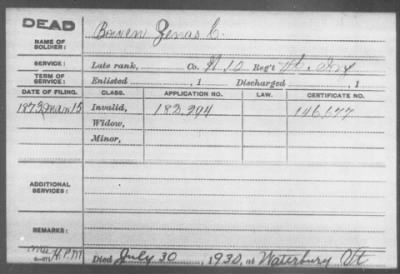 DEAD
NAME OF SOLDIER: Bowen Zenas C.
SERVICE: Late rank, Co. H 10 Reg't Vt. Inf
TERM OF SERVICE: Enlisted , 1 Discharged , 1
DATE OF FILING. CLASS. APPLICATION NO. LAW. CERTIFICATE NO.
1873 Mar 15 Invalid, 182,294 146,677
Widow,
Minor,
ADDITIONAL SERVICES:
REMARKS:
Died July 30, 1930, at Waterbury Vt